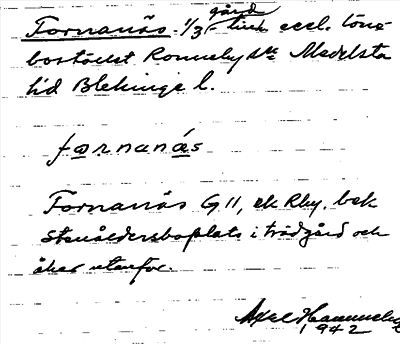 gård
Tornanäs. 1/3 eccl. löne
bostället Ronneby sn Medelsta
hd Blekinge l.
fornanäs
Tornanäs G 11, ek Rby. bek
Stenåldersboplats i trädgård och
åker utanför.
Axel
1942